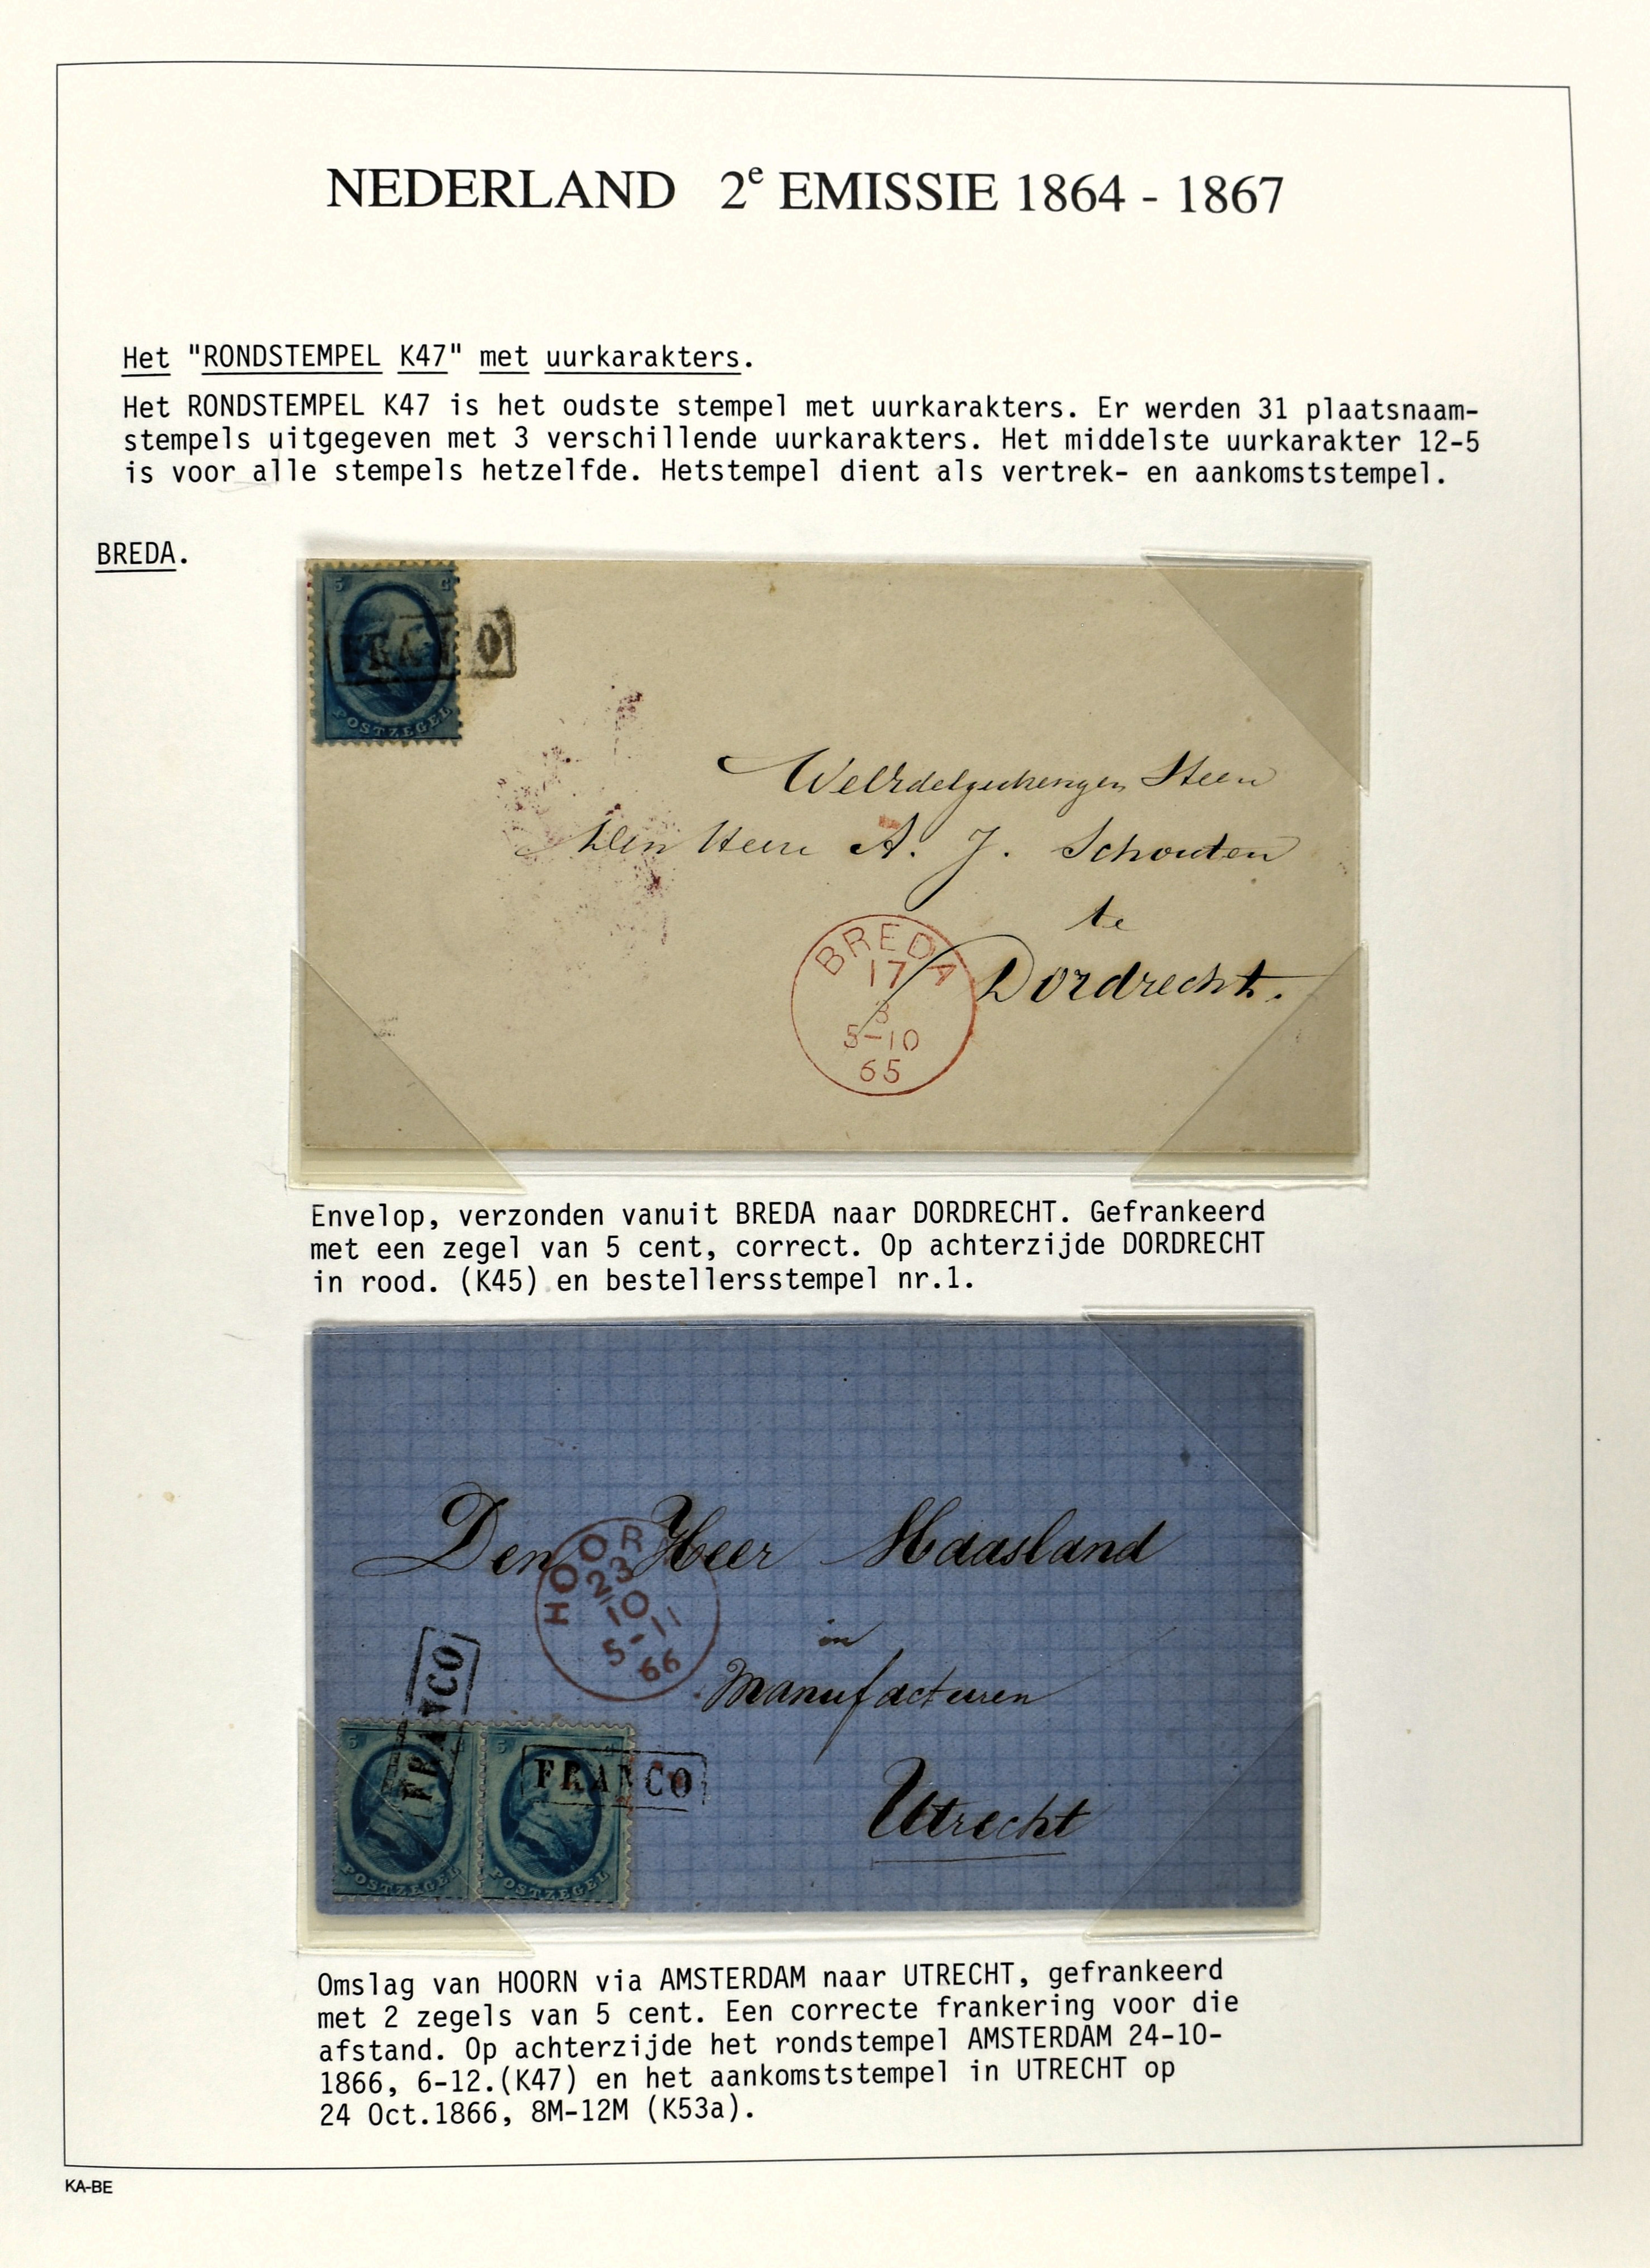 NEDERLAND 2e EMISSIE 1864 - 1867
Het "RONDSTEMPEL K47" met uurkarakters.
Het RONDSTEMPEL K47 is het oudste stempel met uurkarakters. Er werden 31 plaatsnaam-
stempels uitgegeven met 3 verschillende uurkarakters. Het middelste uurkarakter 12-5
is voor alle stempels hetzelfde. Hetstempel dient als vertrek- en aankomststempel.
BREDA.
5 C
FRANCO
POSTZEGEL
Heer
Den Heere A. J. Schouten
te
Dordrecht.
BREDA
17
3
5-10
65
Envelop, verzonden vanuit BREDA naar DORDRECHT. Gefrankeerd
met een zegel van 5 cent, correct. Op achterzijde DORDRECHT
in rood. (K45) en bestellersstempel nr.1.
Den Heer Haasland
in
Manufacturen
Utrecht
HOOR
23
10
5-11
66
FRANCO
5 C
POSTZEGEL
5 C
FRANCO
POSTZEGEL
Omslag van HOORN via AMSTERDAM naar UTRECHT, gefrankeerd
met 2 zegels van 5 cent. Een correcte frankering voor die
afstand. Op achterzijde het rondstempel AMSTERDAM 24-10-
1866, 6-12.(K47) en het aankomststempel in UTRECHT op
24 Oct.1866, 8M-12M (K53a).
KA-BE